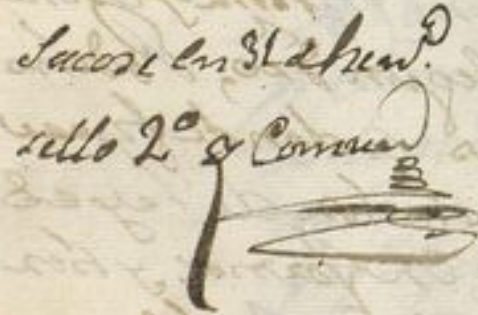 Sacose en 31 de hen.º
sello 2º y Comun